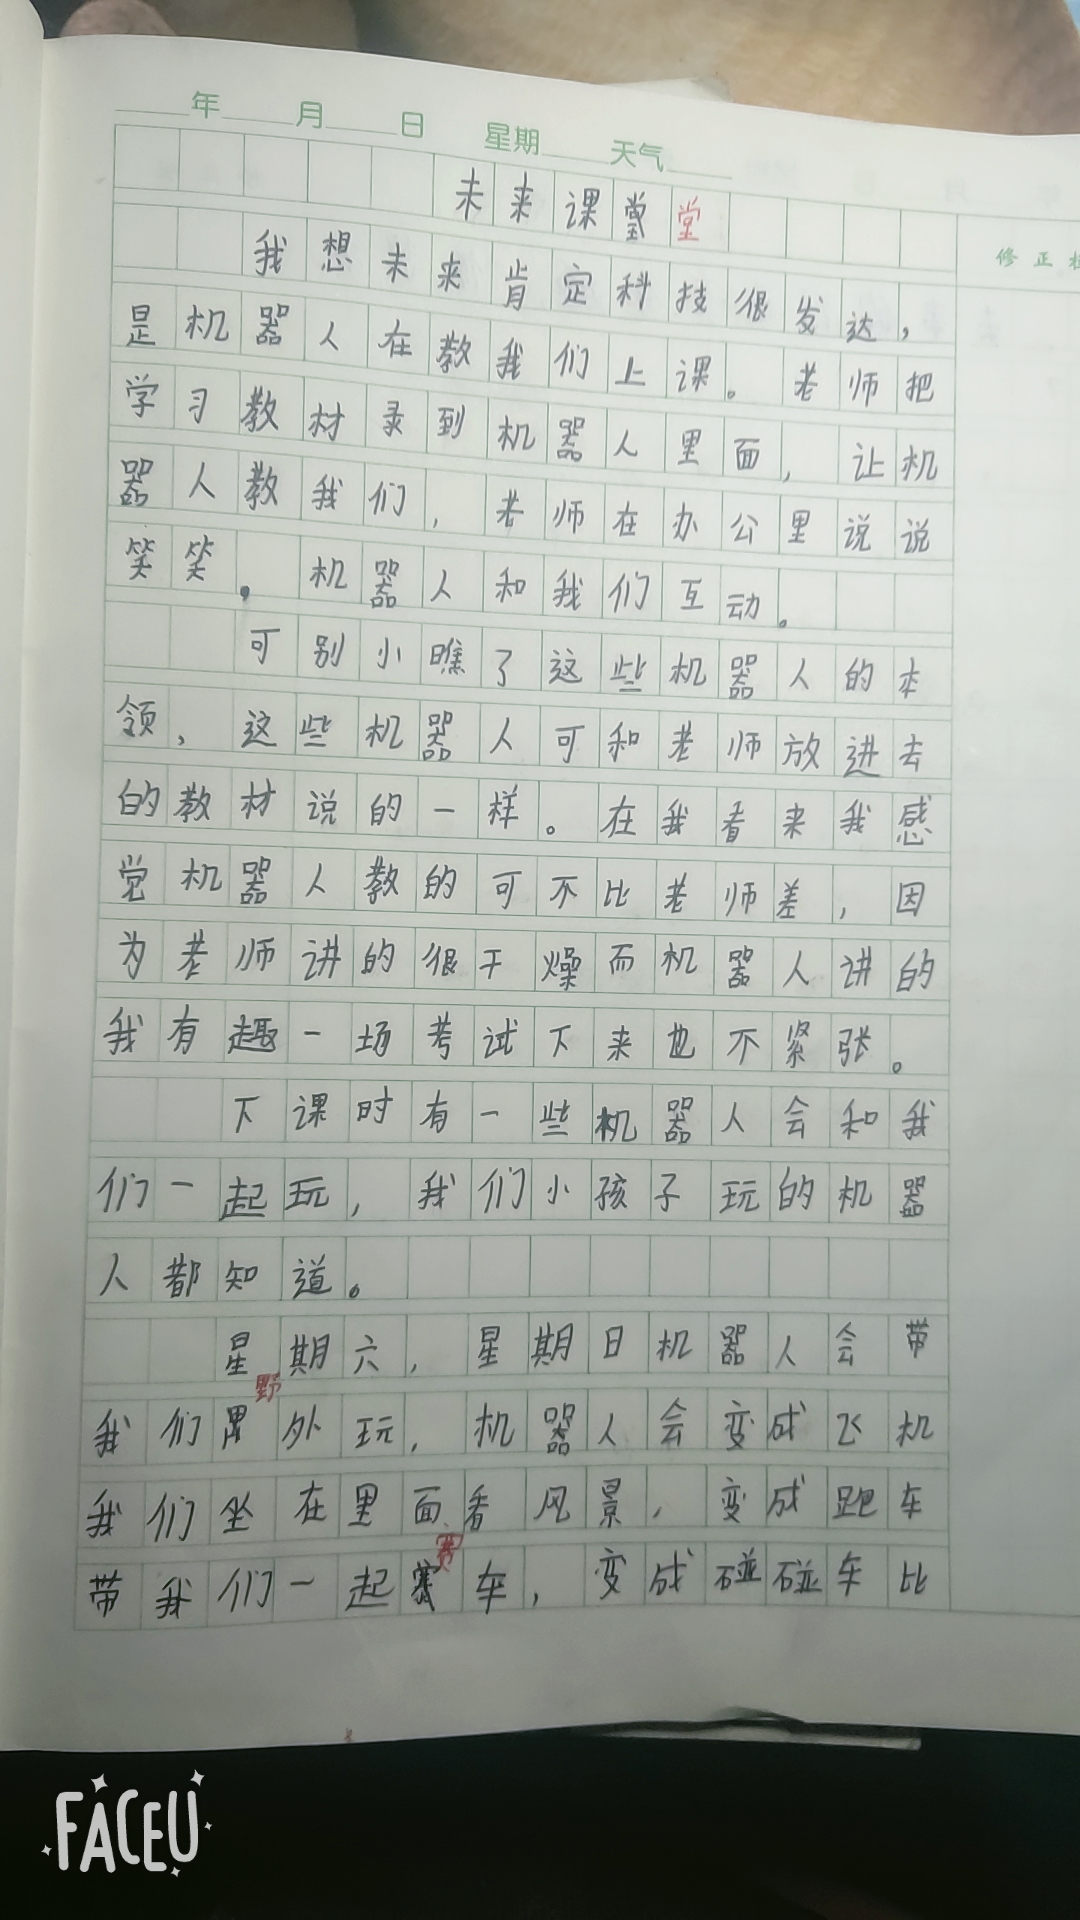 年 月 日 星期 天气
未来课堂堂
修正栏
我想未来肯定科技很发达，
是机器人在教我们上课。老师把
学习教材录到机器人里面，让机
器人教我们，老师在办公里说说
笑笑。机器人和我们互动。
可别小瞧了这些机器人的本
领，这些机器人可和老师放进去
的教材说的一样。在我看来我感
觉机器人教的可不比老师差，因
为老师讲的很干燥而机器人讲的
我有趣一场考试下来也不紧张。
下课时有一些机器人会和我
们一起玩，我们小孩子玩的机器
人都知道。
星期六，星期日机器人会带
野
我们外玩，机器人会变成飞机
我们坐在里面看风景，变成跑车
赛
带我们一起赛车，变成碰碰车比
FACEU